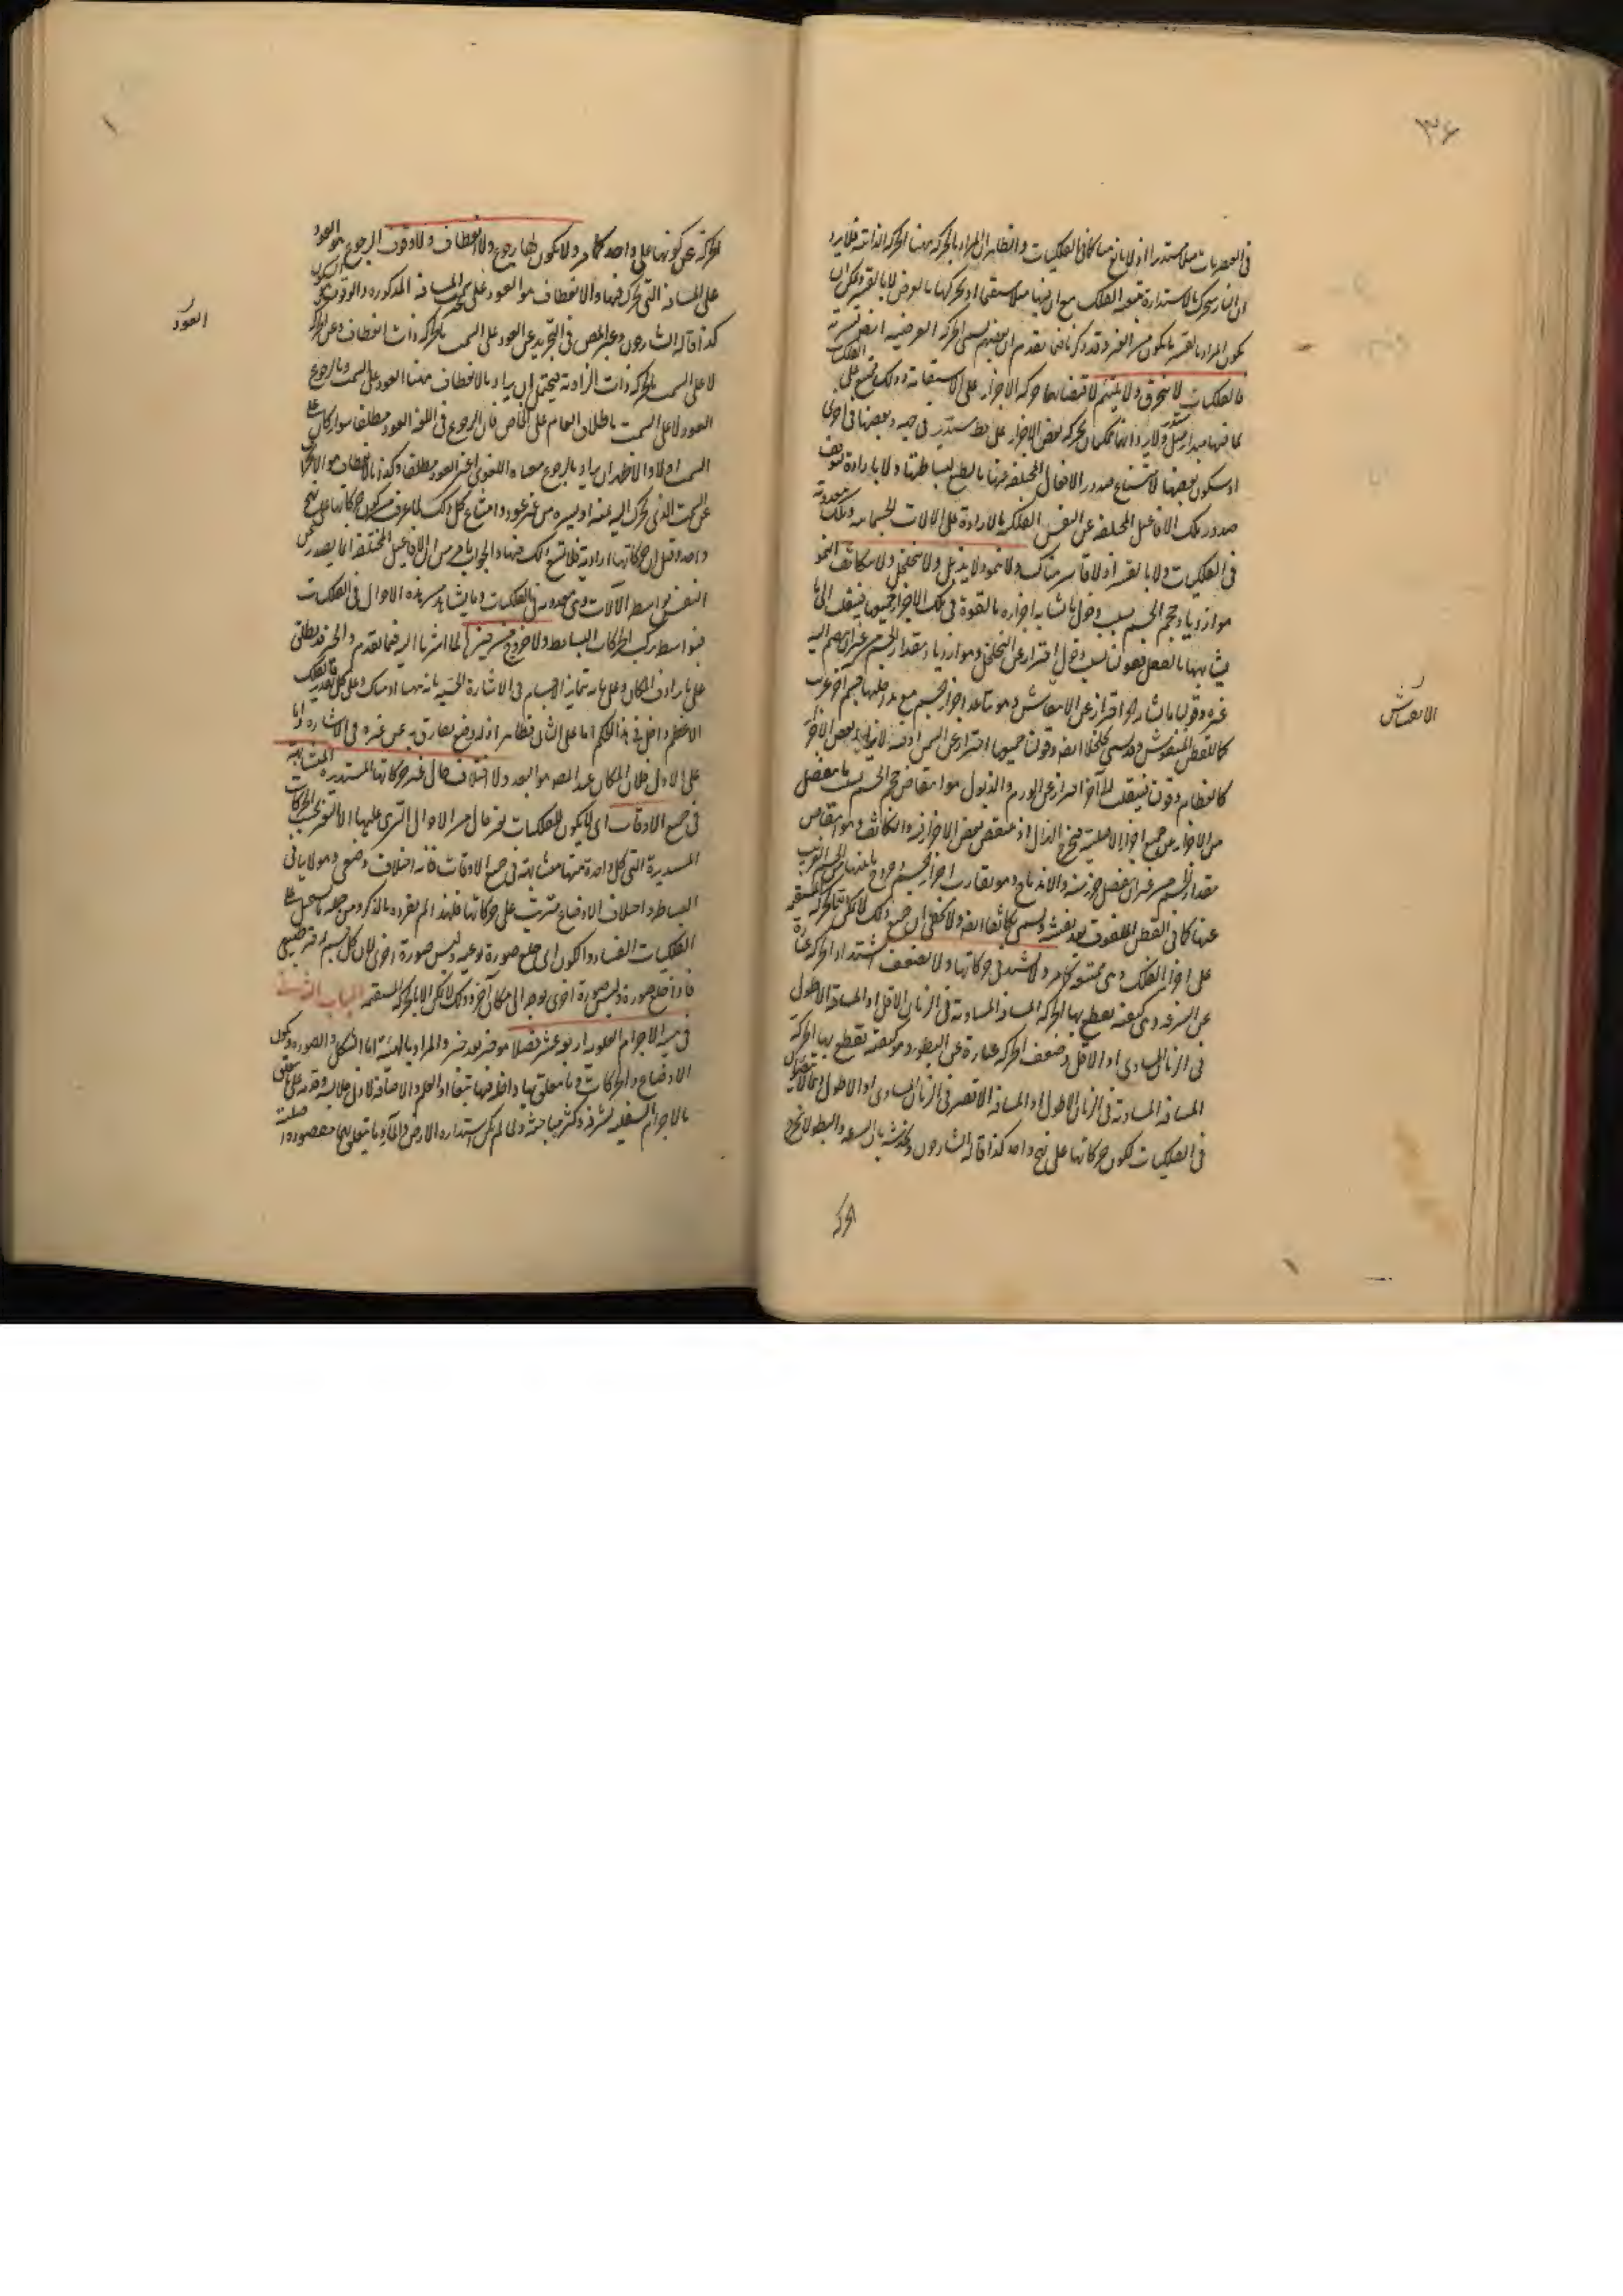 ٣۶
فى العنصريات ميلا مستديرا اذ لا مانع هناك كما فى الفلكيات والظاهر ان المراد بالحركة ههنا الحركة الذاتية فلا يرد
ان النار يتحرك بالاستدارة بتبعية الفلك مع ان فيها ميلا مستقيما
يكون المراد بالقسر ما يكون من الغير وقد ذكرنا فيما تقدم ان بعضهم يسمى الحركة العرضية ايضا قسرية
فالفلكيات لا ينخرق ولا يلتئم لاقتضائهما حركة الاجزاء على الاستقامة وذلك ممتنع على الفلكيات
لما فيها مبدأ ميل مستدير بحركة بعض الاجزاء على خط مستدير فى جهة وبعضها فى اخرى
او سكون بعضها لامتناع صدور الافعال المختلفة عنها بالطبع لبساطتها ولا بارادة لتوقف
صدور تلك الافاعيل المختلفة عن النفس الفلكية بالارادة على الالات الجسمانية وتلك معدومة
فى الفلكيات ولا بالقسر اذ لا قاسر هناك ولا ينمو ولا يذبل ولا يتخلخل ولا يتكاثف النمو
هو ازدياد حجم الجسم بسبب دخول ما يشابه اجزاءه بالقوة فى تلك الاجزاء جميعها فينقلب الى ما
يشابهها بالفعل فقولنا بسبب دخول احتراز عن التخلخل وهو ازدياد مقدار الجسم من غير ان ينضم اليه
غيره وقولنا ما يشابه احتراز عن الانتفاش وهو تباعد اجزاء جسم مع مداخلها جسم آخر غريب
كالقطن المنفوش وقد يسمى تخلخلا ايضا وقولنا جميعها احتراز عن السمن
كالعظام وقولنا فينقلب الى آخره احتراز عن الورم والذبول هو انتقاص حجم الجسم بسبب ما ينفصل
من الاجزاء عن جميع اجزائه الاصلية فيخرج الهزال اذ ينتقص بعض الاجزاء فيه والتكاثف وهو انتقاص
مقدار الجسم من غير ان يفصل جزء منه والاندماج وهو تقارب اجزاء الجسم وخروج ما بينها من الجسم الغريب
عنها كما فى القطن الملفوف بعد نفشه ويسمى تكاثفا ايضا ولا يخفى ان جميع ذلك لا يمكن الا بالحركة المستقيمة
على اجزاء الفلك وهى ممتنعة كما مر ولا تشتد فى حركاتها ولا تضعف اشتداد الحركة عبارة
عن السرعة وهى كيفية يقطع بها الحركة المسافة المساوية فى الزمان الاقل او المسافة الاطول
فى الزمان المساوى او الاقل وضعف الحركة عبارة عن البطوء وهو كيفية تقطع بها الحركة
المسافة المساوية فى الزمان الاطول او المسافة الاقصر فى الزمان المساوى او الاطول
فى الفلكيات لكون حركاتها على نهج واحد كذا قاله الشارحون
الحركة
الانتفاش
الحركة عن كونها على واحد كما مر ولا يكون لها رجوع ولا انعطاف ولا وقوف الرجوع هو العود
على المسافة التى تحرك فيها والانعطاف هو العود على غير المسافة المذكورة والوقوف هو السكون
كذا قاله الشارحون وعبر المحقق فى التجريد عن العود على السمت بالحركة ذات انعطاف وعن الحركة
لا على السمت بالحركة ذات الزاوية فيحتمل ان يراد بالانعطاف ههنا العود على السمت وبالرجوع
العود لا على السمت باطلاق العام على الخاص فان الرجوع فى اللغة العود مطلقا سواء كان على
السمت اولا والاظهر ان يراد بالرجوع معناه اللغوى اعنى العود مطلقا وكذا بالانعطاف هو الانحراف
عن السمت الذى تحرك اليه يمنة او يسرة من غير عود وامتناع كل ذلك لما عرف من كون حركاتها على نهج
واحد وقيل ان حركاتها ارادية فلا تمتنع تلك فيها والجواب ما مر من ان الافاعيل المختلفة انما يصدر عن
النفس بواسطة الآلات وهى معدومة فى الفلكيات وما يشاهد من هذه الاحوال فى الفلكيات
فبواسطة تركب الحركات البسائط ولا خروج من حيزها لما اشرنا اليه فيما تقدم والحيز قد يطلق
على ما يرادف المكان وعلى ما به تمايز الاجسام فى الاشارة الحسية بانه ههنا او هناك وعلى كل تقدير فالفلك
الاعظم داخل فى هذا الحكم اما على الثانى فظاهر اذ له وضع يفارق به عن غيره فى الاشارة واما
على الاول فلان المكان عند المصنف هو البعد ولا اختلاف حال غير حركاتها المستديرة المتشابهة
فى جميع الاوقات اى لا يكون للفلكيات تغير حال من الاحوال التى يجرى عليها الا التغير بحسب الحركات
المستديرة التى كل واحدة منها متشابهة فى جميع الاوقات فانه اختلاف وضعى وهو لا ينافى
البساطة واختلاف الاوضاع مترتب على حركاتها فلهذا لم يفرده بالذكر ومن جملة ما يستحيل على
الفلكيات الفساد والكون اى خلع صورة نوعية ولبس صورة اخرى لان كل جسم له حيز طبيعى
فاذا خلع صورة ولبس صورة اخرى توجه الى مكان آخر وذلك لا يمكن الا بالحركة المستقيمة الباب الثانى
فى هيئة الاجرام العلوية اربعة عشر فصلا هو خبر بعد خبر والمراد بالهيئة اما الشكل والصورة ويكون
الاوضاع والحركات وما يتعلق بها داخلة فيها تبعا او العلم والاضافة لادنى ملابسة وقدمه على ما يتعلق
بالاجرام السفلية لشرفه وكثرة مباحثه ولما لم يكن استدارة الارض والماء وما يتعلق بهما مقصودة اصلية
العود